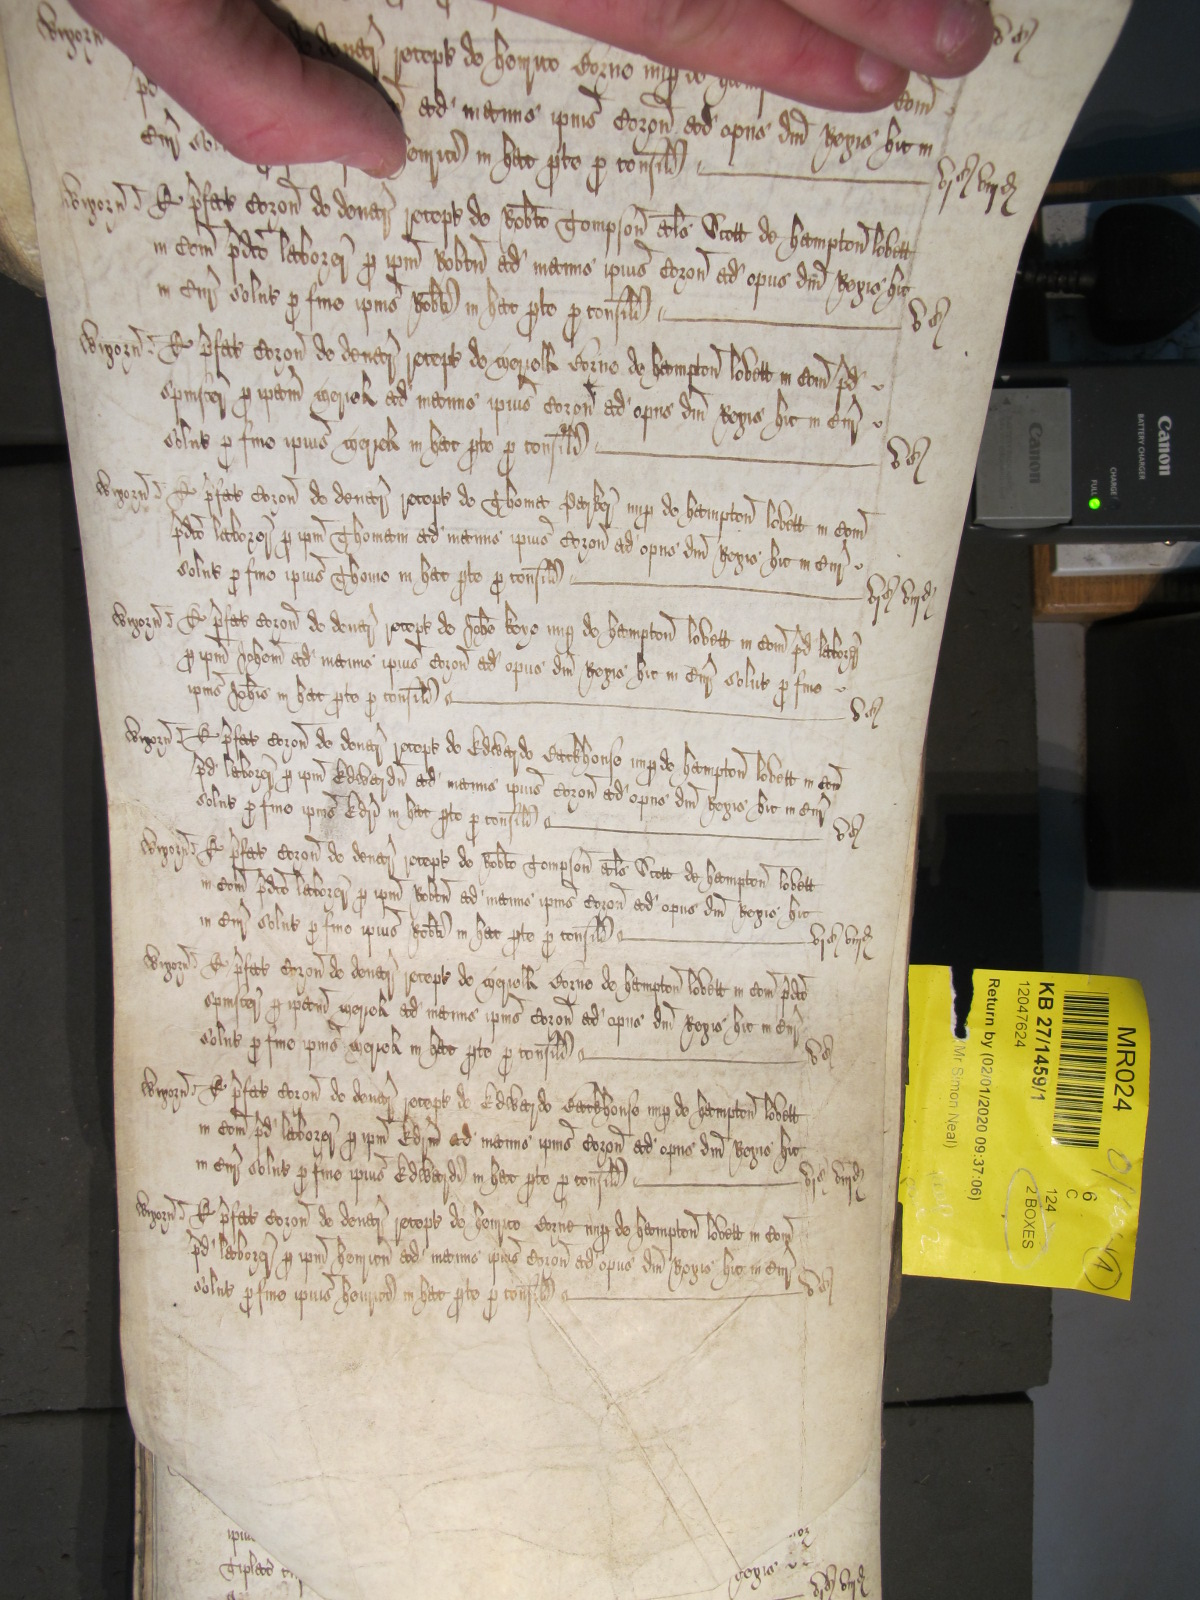 Wigorn
de denar recept de henrico Corne nup de hampton
Com
ad manus ipius Coron ad opus dni Regis hic in
Cur solut
henrici in hac pte p consil vj s viij d
Wigorn R prefat Coron de denar recept de Robto Tompson als Scott de hampton lovett
in Com pdto laborer p ipm Robtm ad manus ipius Coron ad opus dni Regis hic
in Cur solut p fine ipius Robti in hac pte p consil v s
Wigorn R prefat Coron de denar recept de Corne de hampton lovett in Com pd
spinster p ipam ad manus ipius Coron ad opus dni Regis hic in Cur
solut p fine ipius in hac pte p consil v s
Wigorn R prefat Coron de denar recept de Thoma Parker nup de hampton lovett in Com
pdto laborer p ipm Thomam ad manus ipius Coron ad opus dni Regis hic in Cur
solut p fine ipius Thome in hac pte p consil vj s viij d
Wigorn R prefat Coron de denar recept de Johe Keye nup de hampton lovett in Com pd laborer
p ipm Johem ad manus ipius Coron ad opus dni Regis hic in Cur solut p fine
ipius Johis in hac pte p consil v s
Wigorn R prefat Coron de denar recept de Edwardo Backhouse nup de hampton lovett in Com
pd laborer p ipm Edwardu ad manus ipius Coron ad opus dni Regis hic in Cur
solut p fine ipius Edri in hac pte p consil v s
Wigorn R prefat Coron de denar recept de Robto Tompson als Scott de hampton lovett
in Com pdto laborer p ipm Robtm ad manus ipius Coron ad opus dni Regis hic
in Cur solut p fine ipius Robti in hac pte p consil vj s viij d
Wigorn R prefat Coron de denar recept de Corne de hampton lovett in Com pdto
spinster p ipam ad manus ipius Coron ad opus dni Regis hic in Cur
solut p fine ipius in hac pte p consil v s
Wigorn R prefat Coron de denar recept de Edwardo Backhouse nup de hampton lovett
in Com pd laborer p ipm Edrm ad manus ipius Coron ad opus dni Regis hic
in Cur solut p fine ipius Edwardi in hac pte p consil vj s viij d
Wigorn R prefat Coron de denar recept de henrico Corne nup de hampton lovett in Com
pd laborer p ipm henricu ad manus ipius Coron ad opus dni Regis hic in Cur
solut p fine ipius henrici in hac pte p consil v s
Regis
vj s viij d
Canon
BATTERY CHARGER
CHARGE
FULL
Canon
MR024
KB 27/1459/1
12047624
Return by (02/01/2020 09:37:06)
Mr Simon Neal)
6
C
124
2 BOXES
1